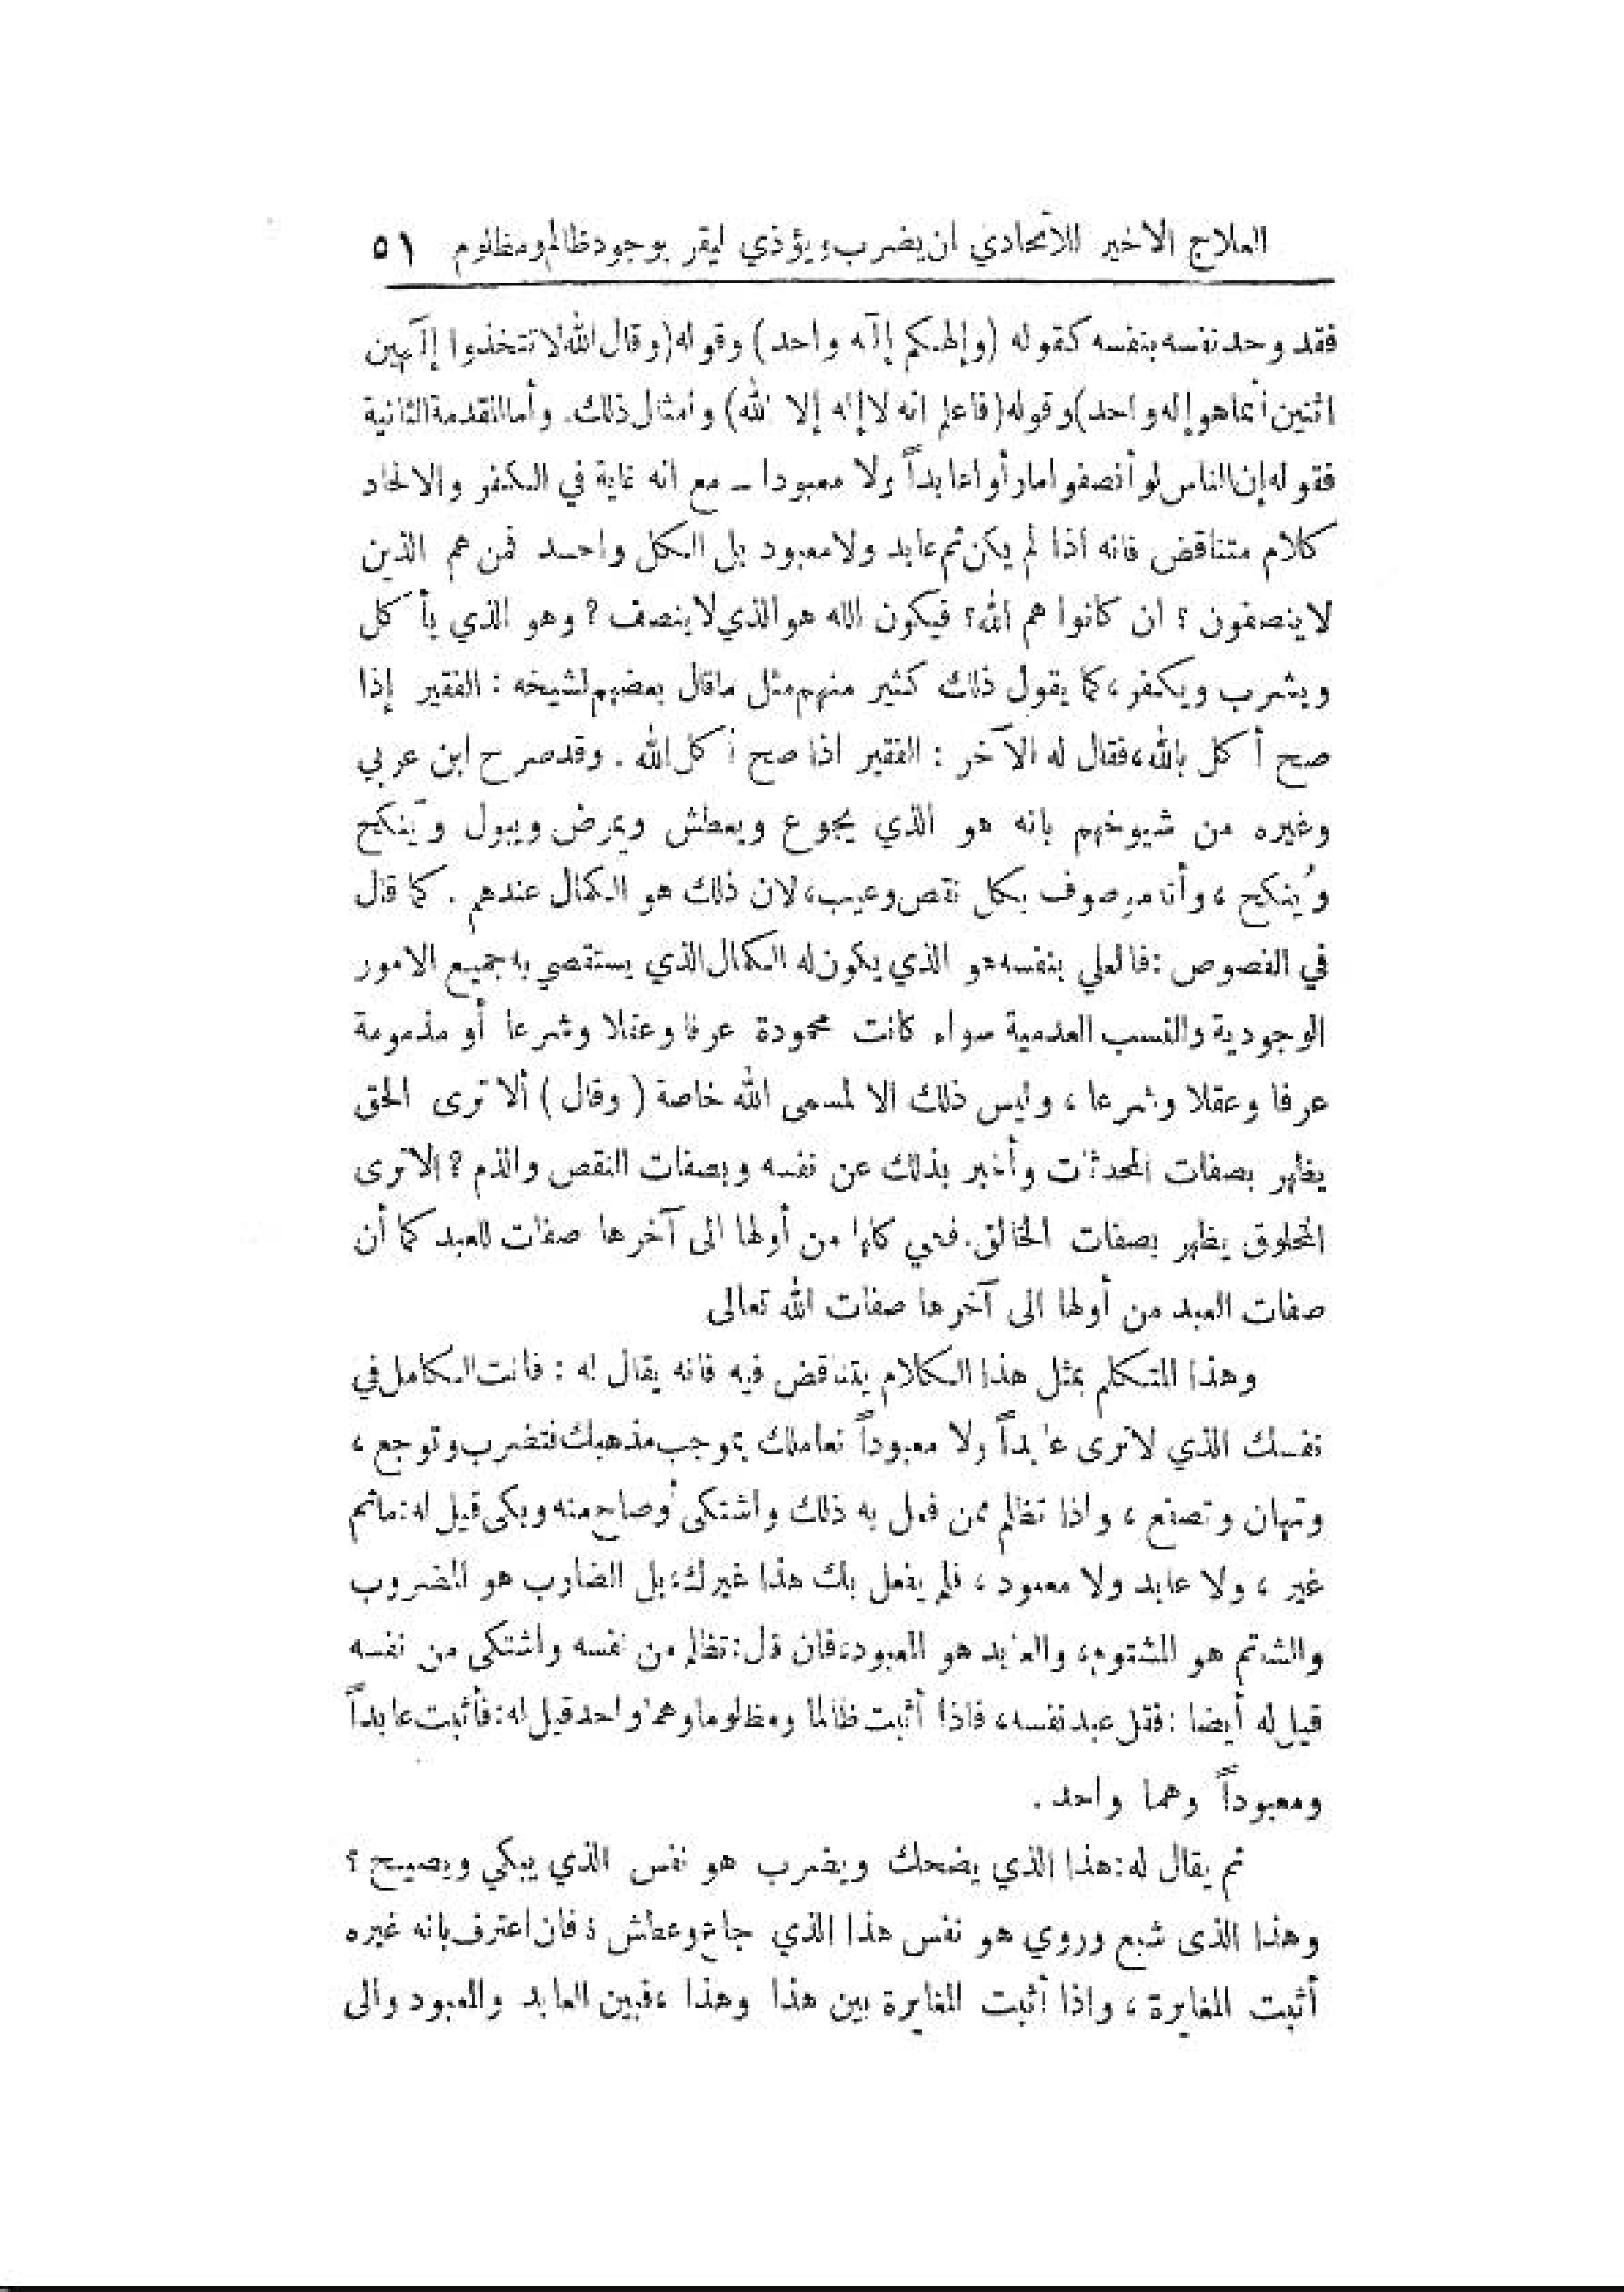 العلاج الاخير للاتحادي ان يضرب ويؤذي ليقر بوجود ظالم ومظلوم ٥١
فقد وحد نفسه بنفسه كقوله (وإلهكم إلٓه واحد) وقوله (وقال الله لا تتخذوا إلٓهين
اثنين أنما هو إله واحد) وقوله (فاعلم انه لا إله إلا الله) وأمثال ذلك. وأما المقدمة الثانية
فقوله إن الناس لو أنصفوا ما رأوا عابداً ولا معبودا ــ مع انه غاية في الكفر والالحاد
كلام متناقض فانه اذا لم يكن ثم عابد ولا معبود بل الكل واحد فمن هم الذين
لا ينصفون ؟ ان كانوا هم الله؟ فيكون الله هو الذي لا ينصف ؟ وهو الذي يأكل
ويشرب ويكفر، كما يقول ذلك كثير منهم مثل ما قال بعضهم لشيخه : الفقير إذا
صح أكل بالله، فقال له الآخر : الفقير اذا صح أكل الله . وقد صرح ابن عربي
وغيره من شيوخهم بانه هو الذي يجوع ويعطش ويمرض ويبول وَينكح
ويُنكح ، وأنه موصوف بكل نقص وعيب، لان ذلك هو الكمال عندهم . كما قال
في الفصوص : فالعلي بنفسه هو الذي يكون له الكمال الذي يستقصي به جميع الامور
الوجودية والنسب العدمية سواء كانت محمودة عرفا وعقلا وشرعا أو مذمومة
عرفا وعقلا وشرعا ، وليس ذلك الا لمسمى الله خاصة ( وقال ) ألا ترى الحق
يظهر بصفات المحدثات وأخبر بذلك عن نفسه وبصفات النقص والذم ؟ الا ترى
المخلوق يظهر بصفات الخالق . فهي كلها من أولها الى آخرها صفات للعبد كما أن
صفات العبد من أولها الى آخرها صفات الله تعالى
وهذا المتكلم بمثل هذا الكلام يتناقض فيه فانه يقال له : فانت الكامل في
نفسك الذي لا ترى عابداً ولا معبوداً نعاملك بموجب مذهبك فتضرب وتوجع ،
وتهان وتصفع ، واذا تظلم ممن فعل به ذلك واشتكى أو صاح منه وبكى قيل له: ما ثم
غير ، ولا عابد ولا معبود ، فلم يفعل بك هذا غيرك، بل الضارب هو المضروب
والشاتم هو المشتوم، والعابد هو المعبود، فان قال: تظلم من نفسه واشتكى من نفسه
قيل له أيضا : فقل عبد نفسه، فاذا أثبت ظالما ومظلوما وهما واحد قيل له: فأثبت عابداً
ومعبوداً وهما واحد .
ثم يقال له: هذا الذي يضحك ويضرب هو نفس الذي يبكي ويصيح ؟
وهذا الذى شبع وروي هو نفس هذا الذي جاع وعطش ؟ فان اعترف بانه غيره
أثبت المغايرة ، واذا أثبت المغايرة بين هذا وهذا ، فبين العابد والمعبود والى